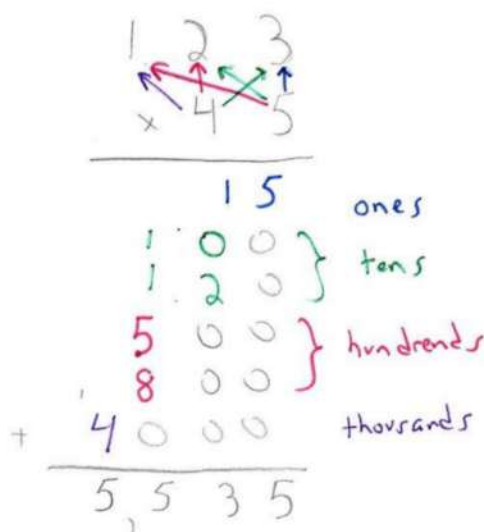 1 2 3
× 4 5
1 5 ones
1 0 0
1 2 0
tens
5 0 0
8 0 0
hundrends
1
+ 4 0 0 0 thousands
5,5 3 5